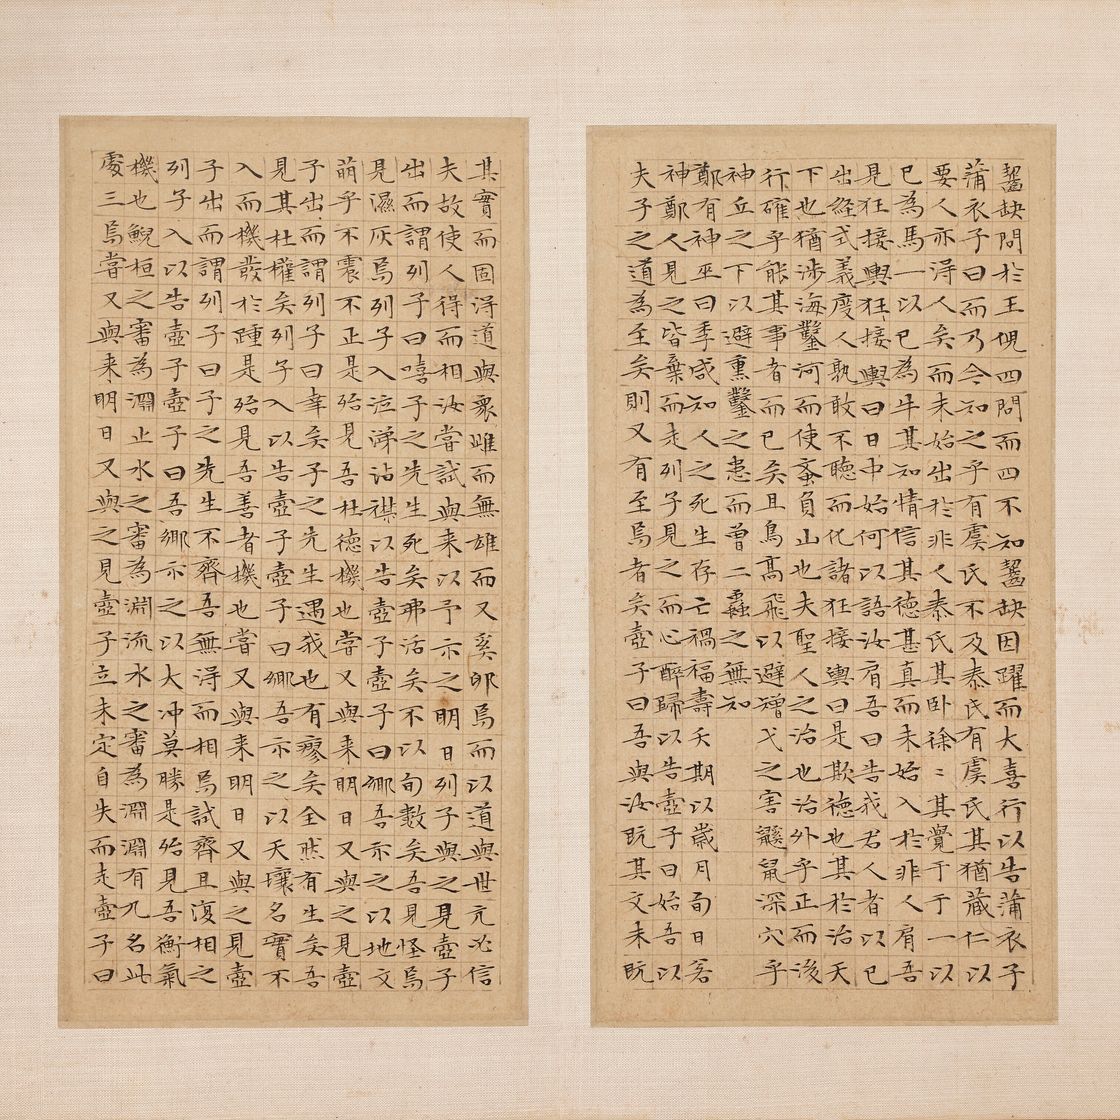 齧缺問於王倪四問而四不知齧缺因躍而大喜行以告蒲衣子
蒲衣子曰而乃今知之乎有虞氏不及泰氏有虞氏其猶藏仁以
要人亦得人矣而未始出於非人泰氏其臥徐〻其覺于于一以
己為馬一以己為牛其知情信其德甚真而未始入於非人肩吾
見狂接輿狂接輿曰日中始何以語汝肩吾曰告我君人者以己
出經式義度人孰敢不聽而化諸狂接輿曰是欺德也其於治天
下也猶涉海鑿河而使蚉負山也夫聖人之治也治外乎正而後
行確乎能其事者而已矣且鳥高飛以避矰弋之害鼷鼠深穴乎
神丘之下以避熏鑿之患而曾二蟲之無知
鄭有神巫曰季咸知人之死生存亡禍福壽夭期以歲月旬日若
神鄭人見之皆棄而走列子見之而心醉歸以告壺子曰始吾以
夫子之道為至矣則又有至焉者矣壺子曰吾與汝既其文未既
其實而固得道與衆雌而無雄而又奚卵焉而以道與世亢必信
夫故使人得而相汝嘗試與来以予示之明日列子與之見壺子
出而謂列子曰嘻子之先生死矣弗活矣不以旬數矣吾見怪焉
見濕灰焉列子入泣涕沾襟以告壺子壺子曰鄉吾示之以地文
萌乎不震不正是殆見吾杜德機也嘗又與来明日又與之見壺
子出而謂列子曰幸矣子之先生遇我也有瘳矣全然有生矣吾
見其杜權矣列子入以告壺子壺子曰鄉吾示之以天壤名實不
入而機發於踵是殆見吾善者機也嘗又與来明日又與之見壺
子出而謂列子曰子之先生不齊吾無得而相焉試齊且復相之
列子入以告壺子壺子曰吾鄉示之以大冲莫勝是殆見吾衡氣
機也鯢桓之審為淵止水之審為淵流水之審為淵淵有九名此
處三焉嘗又與来明日又與之見壺子立未定自失而走壺子曰